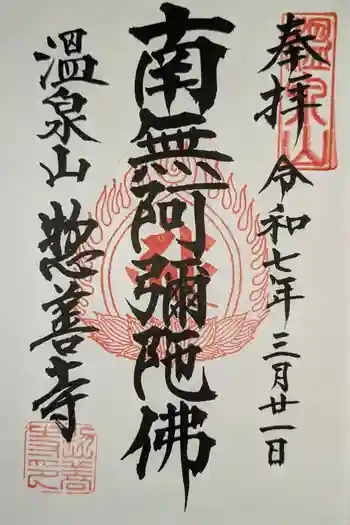 奉拝
令和七年三月廿一日
南無阿彌陀佛
溫泉山
惣善寺
溫泉山